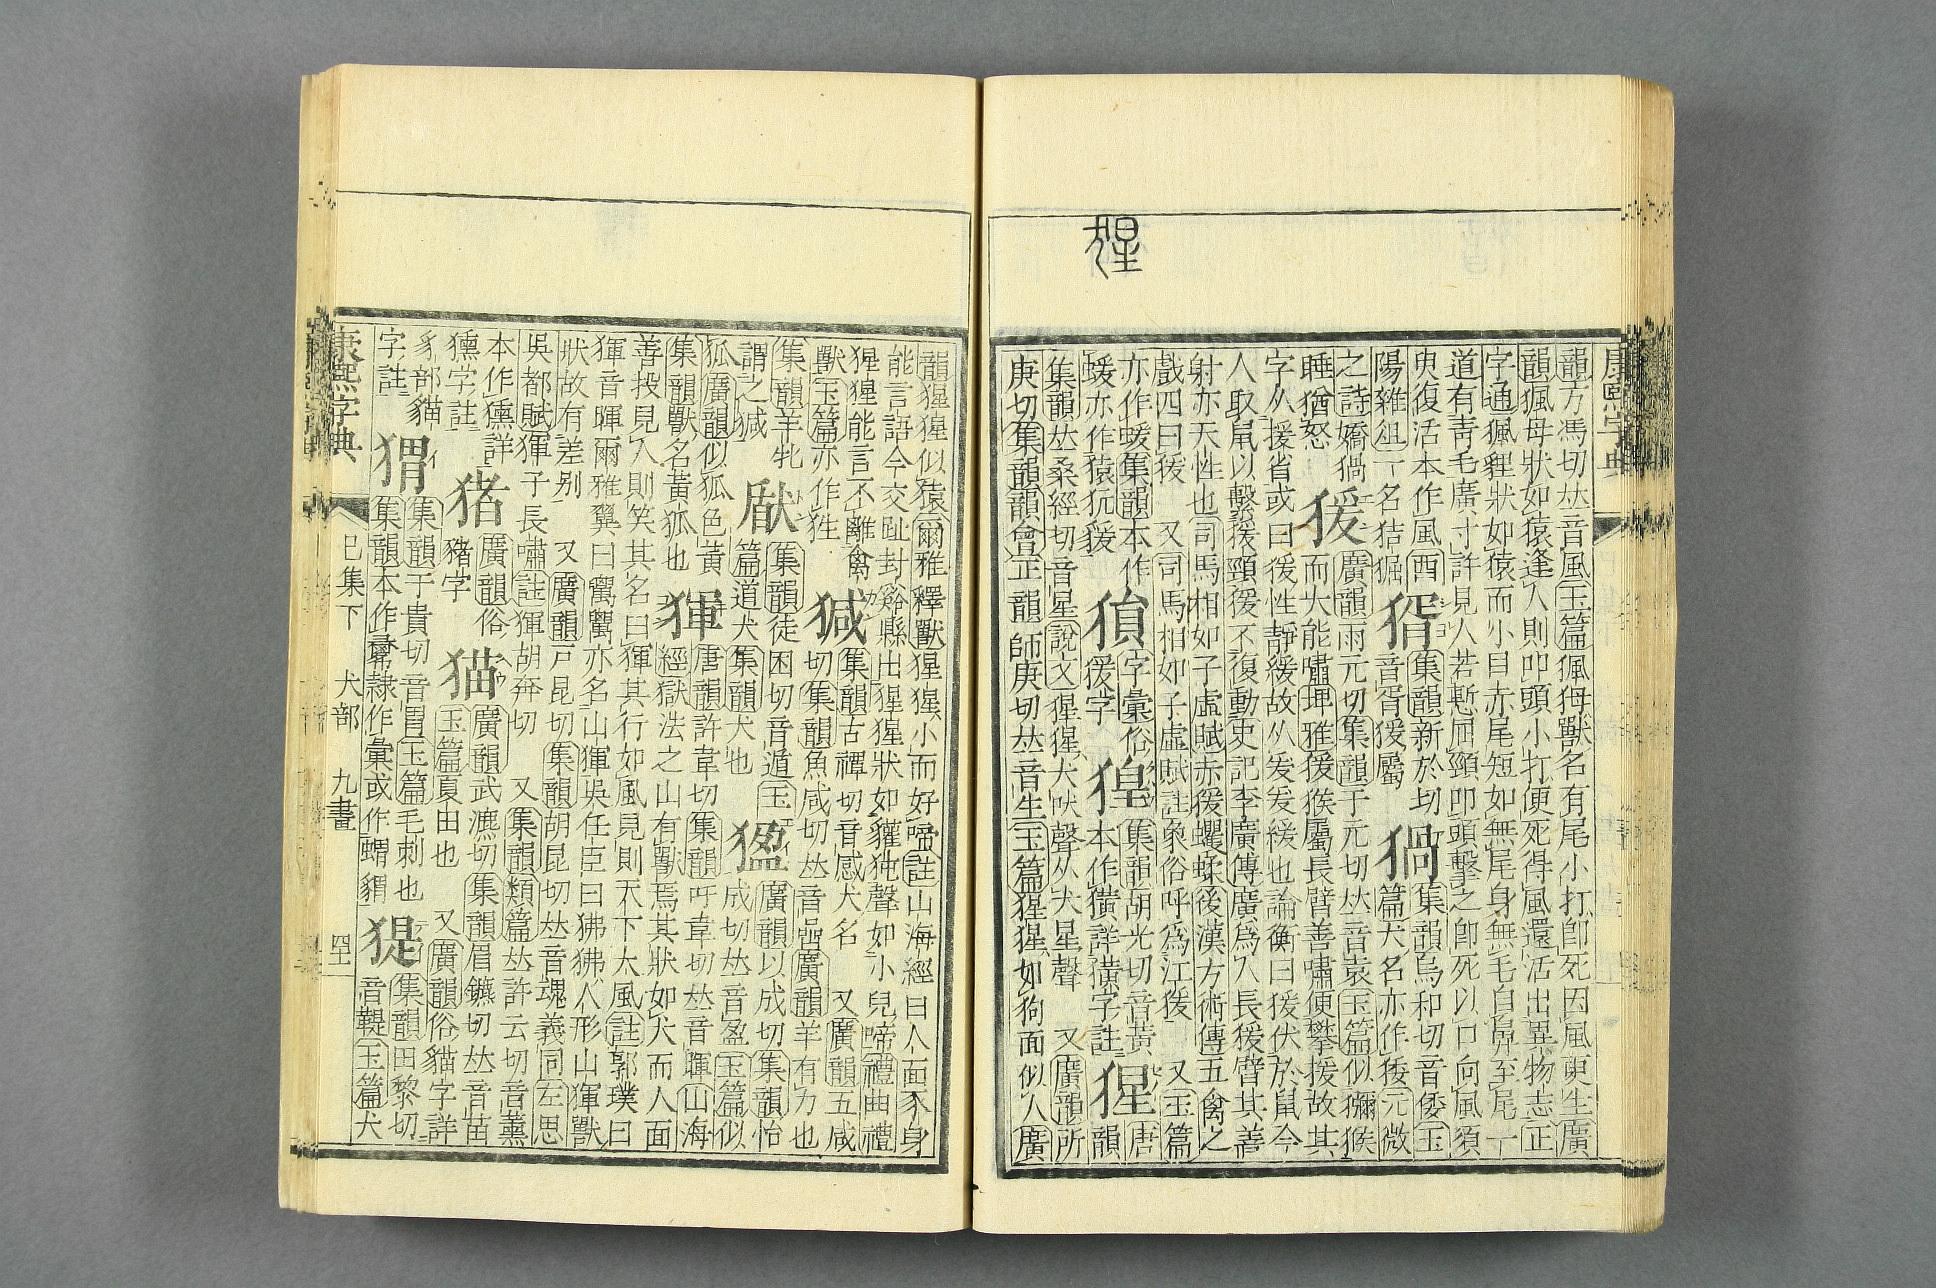 猩
康熙字典
韻方馮切𠀤音風玉篇猦㺇獸名有尾小打卽死因風更生廣
韻猦母狀如猿逢人則叩頭小打便死得風還活出異物志正
字通猦貍狀如猿而小目赤尾短如無尾身無毛自鼻至尾一
道有靑毛廣寸許見人若慙屈頸叩頭擊之卽死以口向風須
臾復活本作風西
陽雜俎一名狤𤟎
㺊
集韻新於切
音胥猨屬
猧
集韻烏和切音倭玉
篇犬名亦作㹻元微
之詩嬌猧
睡猶怒
猨
廣韻雨元切集韻于元切𠀤音袁玉篇似獼猴
而大能嘯埤雅猨猴屬長臂善嘯便攀援故其
字从援省或曰猨性靜緩故从爰爰緩也論衡曰猨伏於鼠今
人取鼠以繫猨頸猨不復動史記李廣傳廣爲人長猨臂其善
射亦天性也司馬相如子虛賦赤猨蠷蝚後漢方術傳五禽之
戲四曰猨 又司馬相如子虛賦註象俗呼爲江猨 又玉篇
亦作蝯集韻本作
蝯亦作猿犺猨
字彙俗
猨字
猩
集韻胡光切音黃
本作獚詳獚字註
猩
唐
韻
集韻𠀤桑經切音星說文猩猩犬吠聲从犬星聲 又廣韻所
庚切集韻韻會正韻師庚切𠀤音生玉篇猩猩如狗面似人廣
韻猩猩似猿爾雅釋獸猩猩小而好啼註山海經曰人面豕身
能言語今交趾封谿縣出猩猩狀如貛㹠聲如小兒啼禮曲禮
猩猩能言不離禽
獸玉篇亦作狌
猲
集韻古禫切音感犬名 又廣韻五咸
切集韻魚咸切𠀤音嵒廣韻羊有力也
集韻羊牝
謂之㺂
猒
集韻徒困切音遁玉
篇道犬集韻犬也
㺠
廣韻以成切集韻怡
成切𠀤音盈玉篇似
狐廣韻似狐色黃
集韻獸名黃狐也
獋
唐韻許韋切集韻呼韋切𠀤音暉山海
經獄法之山有獸焉其狀如犬而人面
善投見人則笑其名曰獋其行如風見則天下大風註郭璞曰
獋音暉爾雅翼曰𤣂𤣂亦名山獋吳任臣曰狒狒人形山獋獸
狀故有差别 又廣韻戸昆切集韻胡昆切𠀤音魂義同左思
吳都賦獋子長嘯註獋胡奔切 又集韻類篇𠀤許云切音薰
本作獯詳
獯字註
猪
廣韻俗
豬字
猫
廣韻武瀌切集韻眉鑣切𠀤音苗
玉篇夏田也 又廣韻俗貓字詳
豸部貓
字註
猬
集韻于貴切音胃玉篇毛刺也
集韻本作彙隷作彚或作蝟䝐
㹍
集韻田黎切
音鞮玉篇犬
康熙字典 巳集下 犬部 九畫 四十一